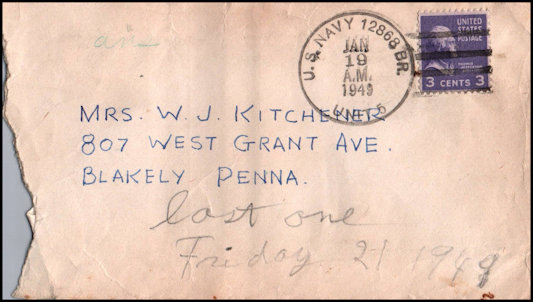 an
U.S. NAVY 12868 BR.
JAN
19
A.M.
1949
UNIT 5
UNITED
STATES
POSTAGE
THOMAS
JEFFERSON
3 CENTS 3
MRS. W. J. KITCHENER
807 WEST GRANT AVE.
BLAKELY PENNA.
last one
Friday 21 1949